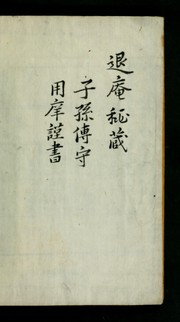 退庵秘蔵
子孫傳守
用庠謹書